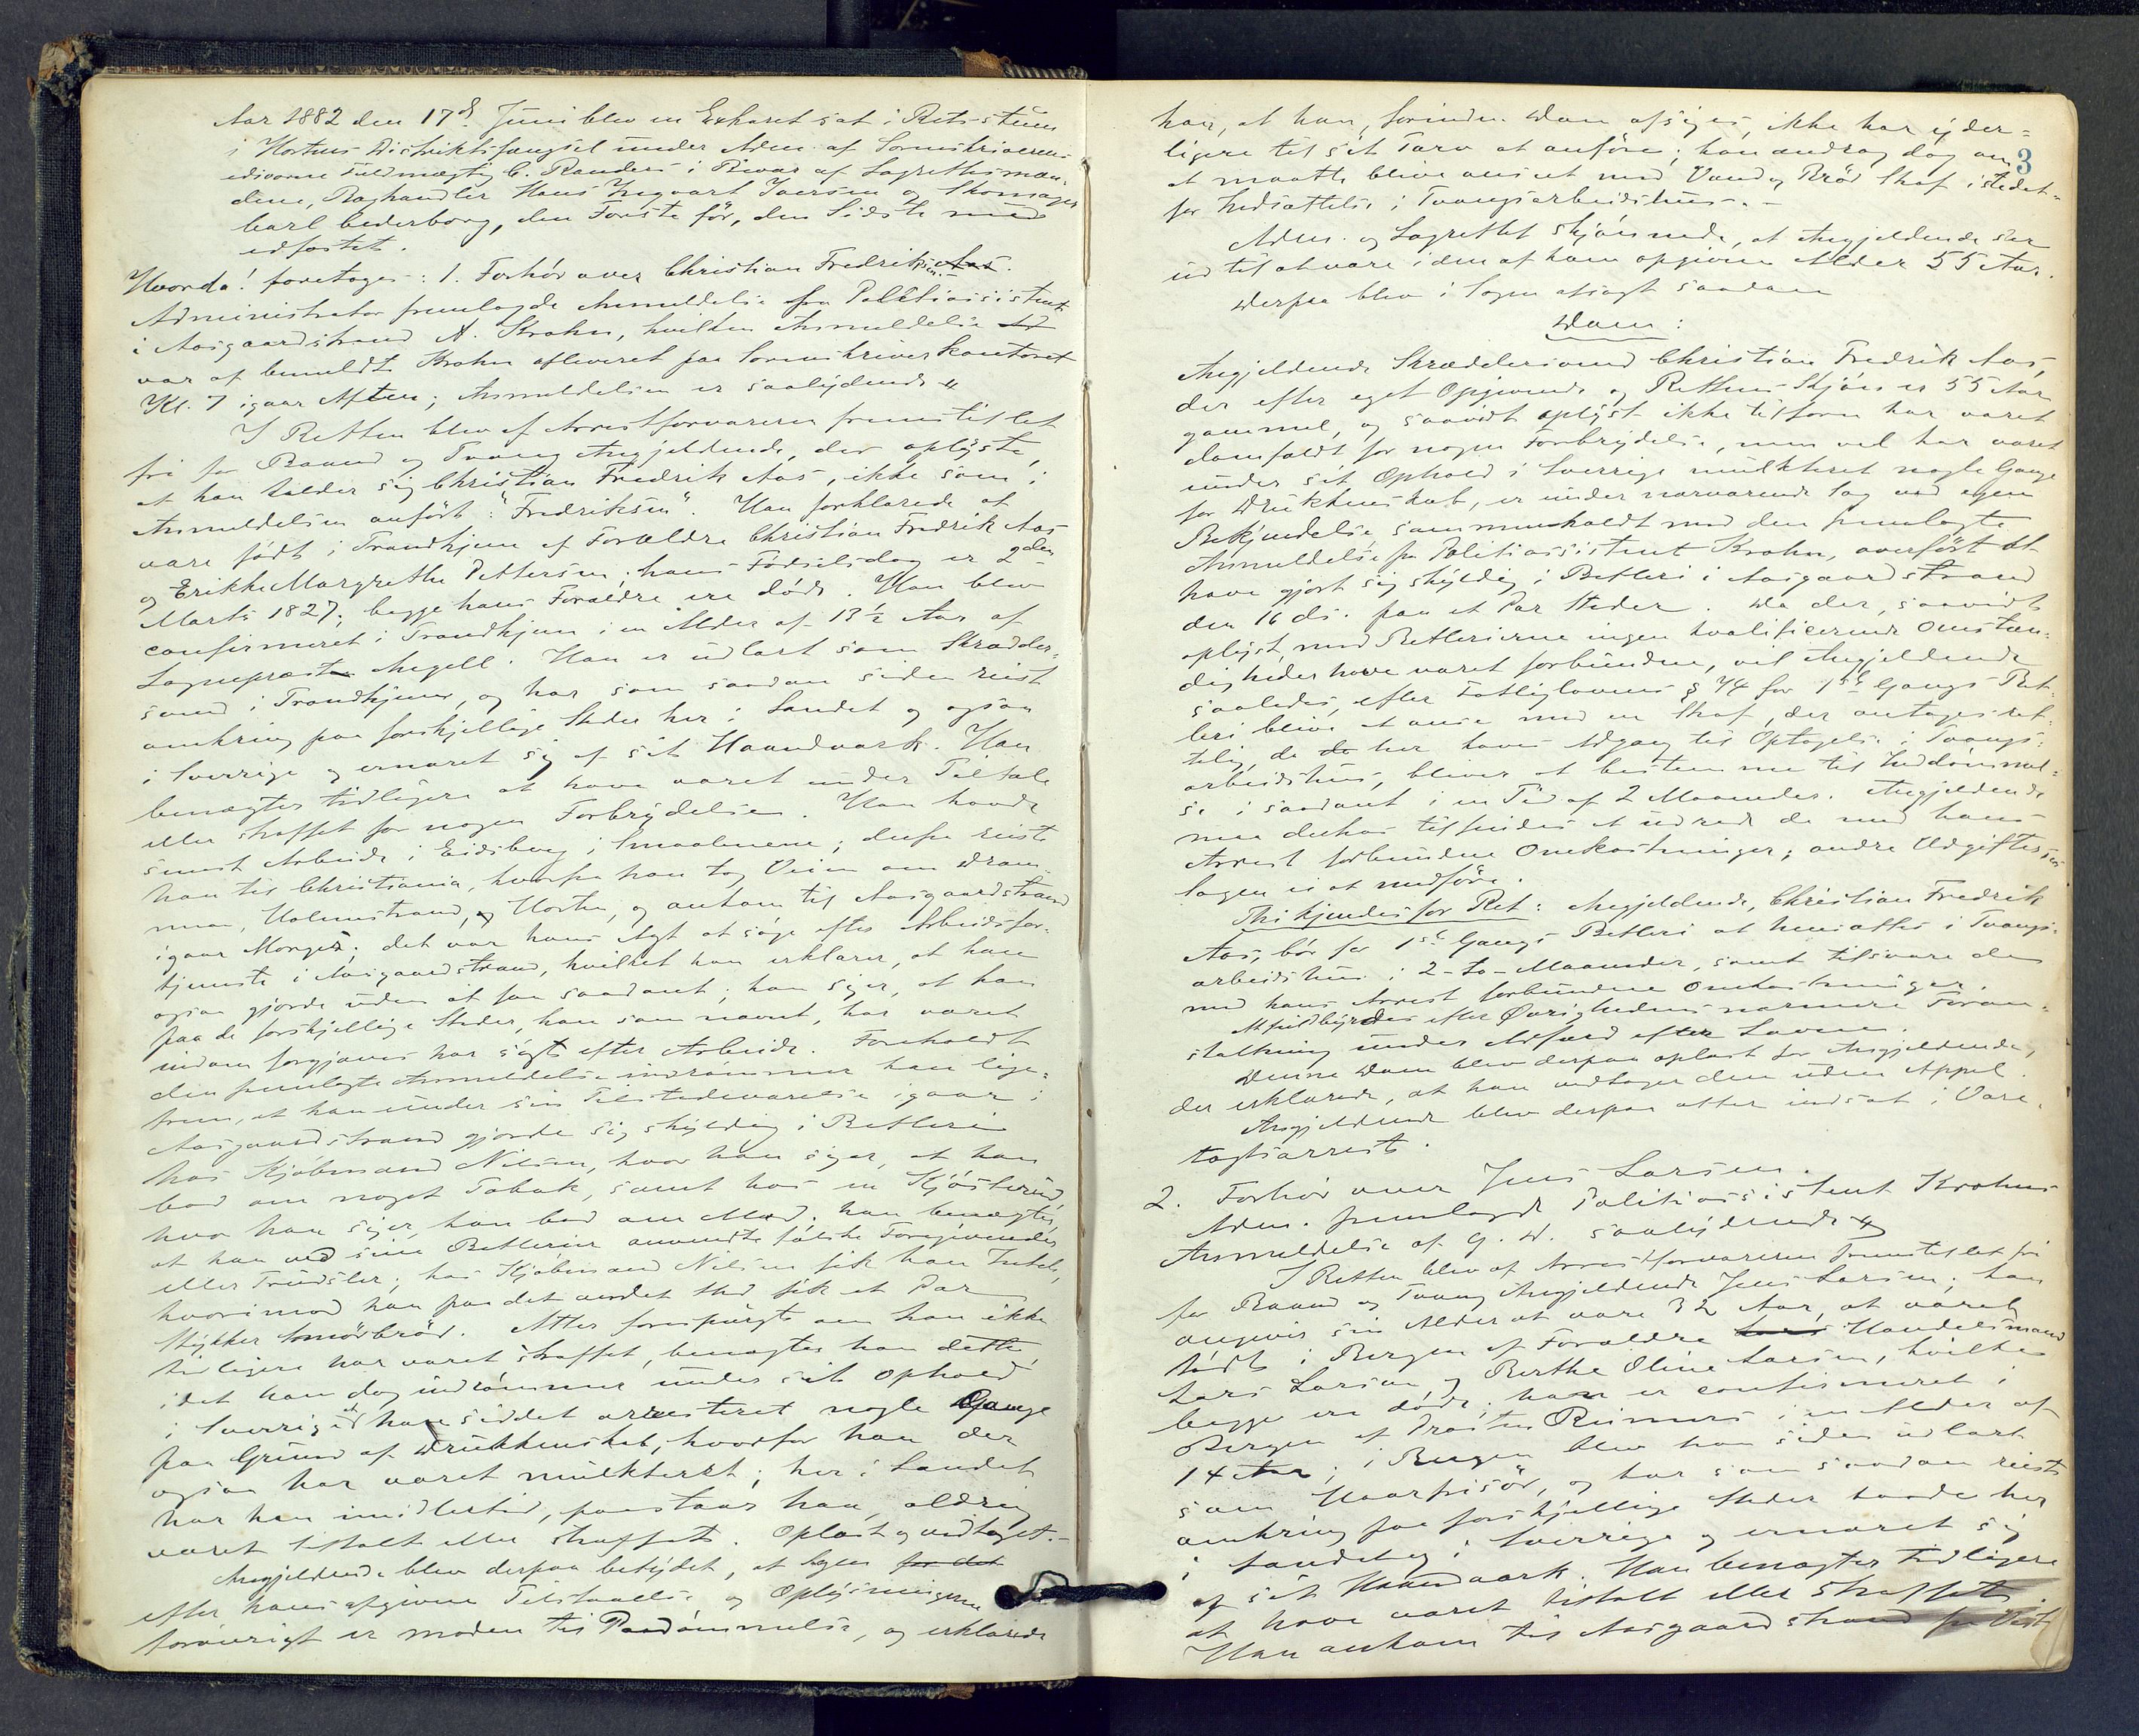 Aar 1882 den 17d. Juni blev en Extraret sat i Rets-stuen
i Hortens Distriktsfængsel under Adm. af Sorenskriverens
edsvorne Fuldmægtig C. Randers i Bivær af Lagrettesmæn-
dene, Raghandler Hans Ingvart Iversen og Skomager
Carl Cederborg, den Første før, den Sidste nu
edfæstet.
Hvorda! foretoges: 1. Forhör over Christian Fredriksen Aas.
Administrator fremlagde Anmeldelse fra Politiassistent
i Aasgaardstrand A. Krohn, hvilken Anmeldelse
var af bemeldte Krohn afleveret paa Sorenskriverkontoret
Kl. 7 igaar Aften; Anmeldelsen er saalydende "
I Retten blev af Arrestforvareren fremstillet
fri for Baand og Tvang Angjeldende, der oplyste,
at han kalder sig Christian Fredrik Aas, ikke som i
Anmeldelsen anfört: "Fredriksen". Han forklarede at
være födt i Trondhjem af Forældre Christian Fredrik Aas
og Erikke Margrethe Pettersen; hans Födselsdag er 2den
Marts 1827; begge hans Forældre ere döde. Han blev
confirmeret i Trondhjem i en Alder af 13½ Aar af
Sogneprest Angell. Han er udlært som Skrædder-
svend i Trondhjem, og har som saadan siden reist
omkring paa forskjellige Steder her i Landet og ogsaa
i Sverrige og ernæret sig af sit Haandværk. Han
benægter tidligere at have været under Tiltale
eller straffet for nogen Forbrydelse. Han havde
sidst Arbeide i Eidsberg i Smaalenene; derfra reiste
han til Christiania, hvorfra han tog Veien om Dram-
men, Holmestrand, og Horten, og ankom til Aasgaardstrand
igaar Morges; det var hans Agt at söge efter Arbeidsfor-
tjeneste i Aasgaardstrand, hvilket han erklærer, at han
ogsaa gjorde uden at faa saadant; han siger, at han
paa de forskjellige Steder, han som nævnt, har været
indom forgjæves har sögt efter Arbeide. Foreholdt
den fremlagte Anmeldelse indrömmer han lige-
frem, at han under sin Tilstedeværelse igaar i
Aasgaardstrand gjorde sig skyldig i Betleri
hos Kjöbmand Nilsen, hvor han siger, at han
bad om noget Tobak, samt hos en
hvor han siger, han bad om Mad; han benægter,
at han ved sine Betlerier anvendte falske Foregivender
eller Trudsler; hos Kjöbmand Nilsen fik han Intet,
hvorimod han paa det andet Sted fik et Par
Stykker Smörbröd. Atter forespurgt om han ikke
tidligere har været straffet, benægter han dette,
idet han dog indrömmer under sit Ophold
i Sverrige at have siddet arresteret nogle Gange
paa Grund af Drukkenskab, hvorfor han der
ogsaa har været mulkteret; her i Landet
har han imidlertid, paastaar han, aldrig
været tiltalt eller straffet. Oplæst og vedtaget.-
Angjeldende blev derpaa betydet, at Sagen for det
efter hans afgivne Tilstaaelse og Oplysningerne
forövrigt er moden til Paadömmelse, og erklærede
3
han, at han, forinden Dom afsiges, ikke har yder-
ligere til sit Tarv at anföre; han androg dog om,
at maatte blive anseet med Vand og Bröd Straf istedet-
for Indsættelse i Tvangsarbeidshus. -
Adm. og Lagrettet skjönnede, at Angjeldende ser
ud til at være i den af ham opgivne Alder 55 Aar.
Derpaa blev i Sagen afsagt saadan
Dom:
Angjeldende Skræddersvend Christian Fredrik Aas,
der efter eget Opgivende og Rettens Skjön er 55 Aar
gammel, og saavidt oplyst ikke tilforn har været
domfældt for nogen Forbrydelse, men vel har været
under sit Ophold i Sverrige mulkteret nogle Gange
for Drukkenskab, er under nærværende Sag ved egen
Bekjendelse, sammenholdt med den fremlagte
Anmeldelse fra Politiassistent Krohn, overfört at
have gjort sig skyldig i Betleri i Aasgaardstrand
den 16 ds. paa et Par Steder. Da der, saavidt
oplyst, med Betlerierne ingen kvalificerende Omstæn-
digheder have været forbundne, vil Angjeldende
saaledes, efter Fattiglovens § 74 for 1ste Gangs Bet-
leri blive at anse med en Straf, der antages ret-
telig, da der her haves Adgang til Optagelse i Tvangs-
arbeidshus, bliver at bestemme til Inddömmel-
se i saadant i en Tid af 2 Maaneder. Angjeldende
maa derhos tilfindes at udrede de med hans
Arrest forbundne Omkostninger; andre Udgifter sees
Sagen ei at medföre.
Thi kjendes for Ret: Angjeldende, Christian Fredrik
Aas, bör for 1ste Gangs Betleri at hensættes i Tvangs-
arbeidshus i 2-to-Maaneder, samt tilsvare de
med hans Arrest forbundne Omkostninger.
At fuldbyrdes efter Övrighedens nærmere Foran-
staltning under Adfærd efter Loven.
Denne Dom blev derpaa oplæst for Angjeldende,
der erklærede, at han vedtager den uden Appel.
Angjeldende blev derpaa atter indsat i Vare-
tægtsarrest.
2. Forhör over Jens Larsen.
Adm. fremlagde Politiassistent Krohns
Anmeldelse af G. D. saalydende "
I Retten blev af Arrestforvareren fremstillet fri
for Baand og Tvang Angjeldende Jens Larsen; han
angiver sin Alder at være 32 Aar, at være
födt i Bergen af Forældre Handelsmand
Lars Larsen og Berthe Oline Larsen, hvilke
begge ere döde; han er confirmeret i
Bergen af Presten Reimers i en Alder af
14 Aar; i Bergen blev han siden udlært
som Haarfrisör, og har som saadan reist
omkring paa forskjellige Steder baade her
i Landet og i Sverrige og ernæret sig
af sit Haandværk. Han benægter tidligere
at have været tiltalt eller straffet.
Han ankom til Aasgaardstrand